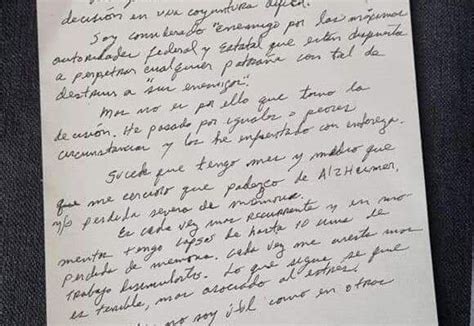 decisión en una coyuntura difícil.
Soy considerado "enemigo por las máximas
autoridades federal y Estatal que están dispuesta
a perpetrar cualquier patraña con tal de
destruir a "sus enemigos".
Mas no es por ello que tomo la
decisión. He pasado por iguales o peores
circunstancias y los he enfrentado con entereza.
Sucede que tengo mes y medio que
que me cercioro que padezco de Alzheimer,
y/o perdida severa de memoria.
Es cada vez mas recurrente y en mo
mentos tengo lapsos de hasta 10 mins de
perdida de memoria. Cada vez me cuesta mas
trabajo disimularlos. Lo que sigue, se que
es terrible, mas asociado al estres.
no soy útil como en otros